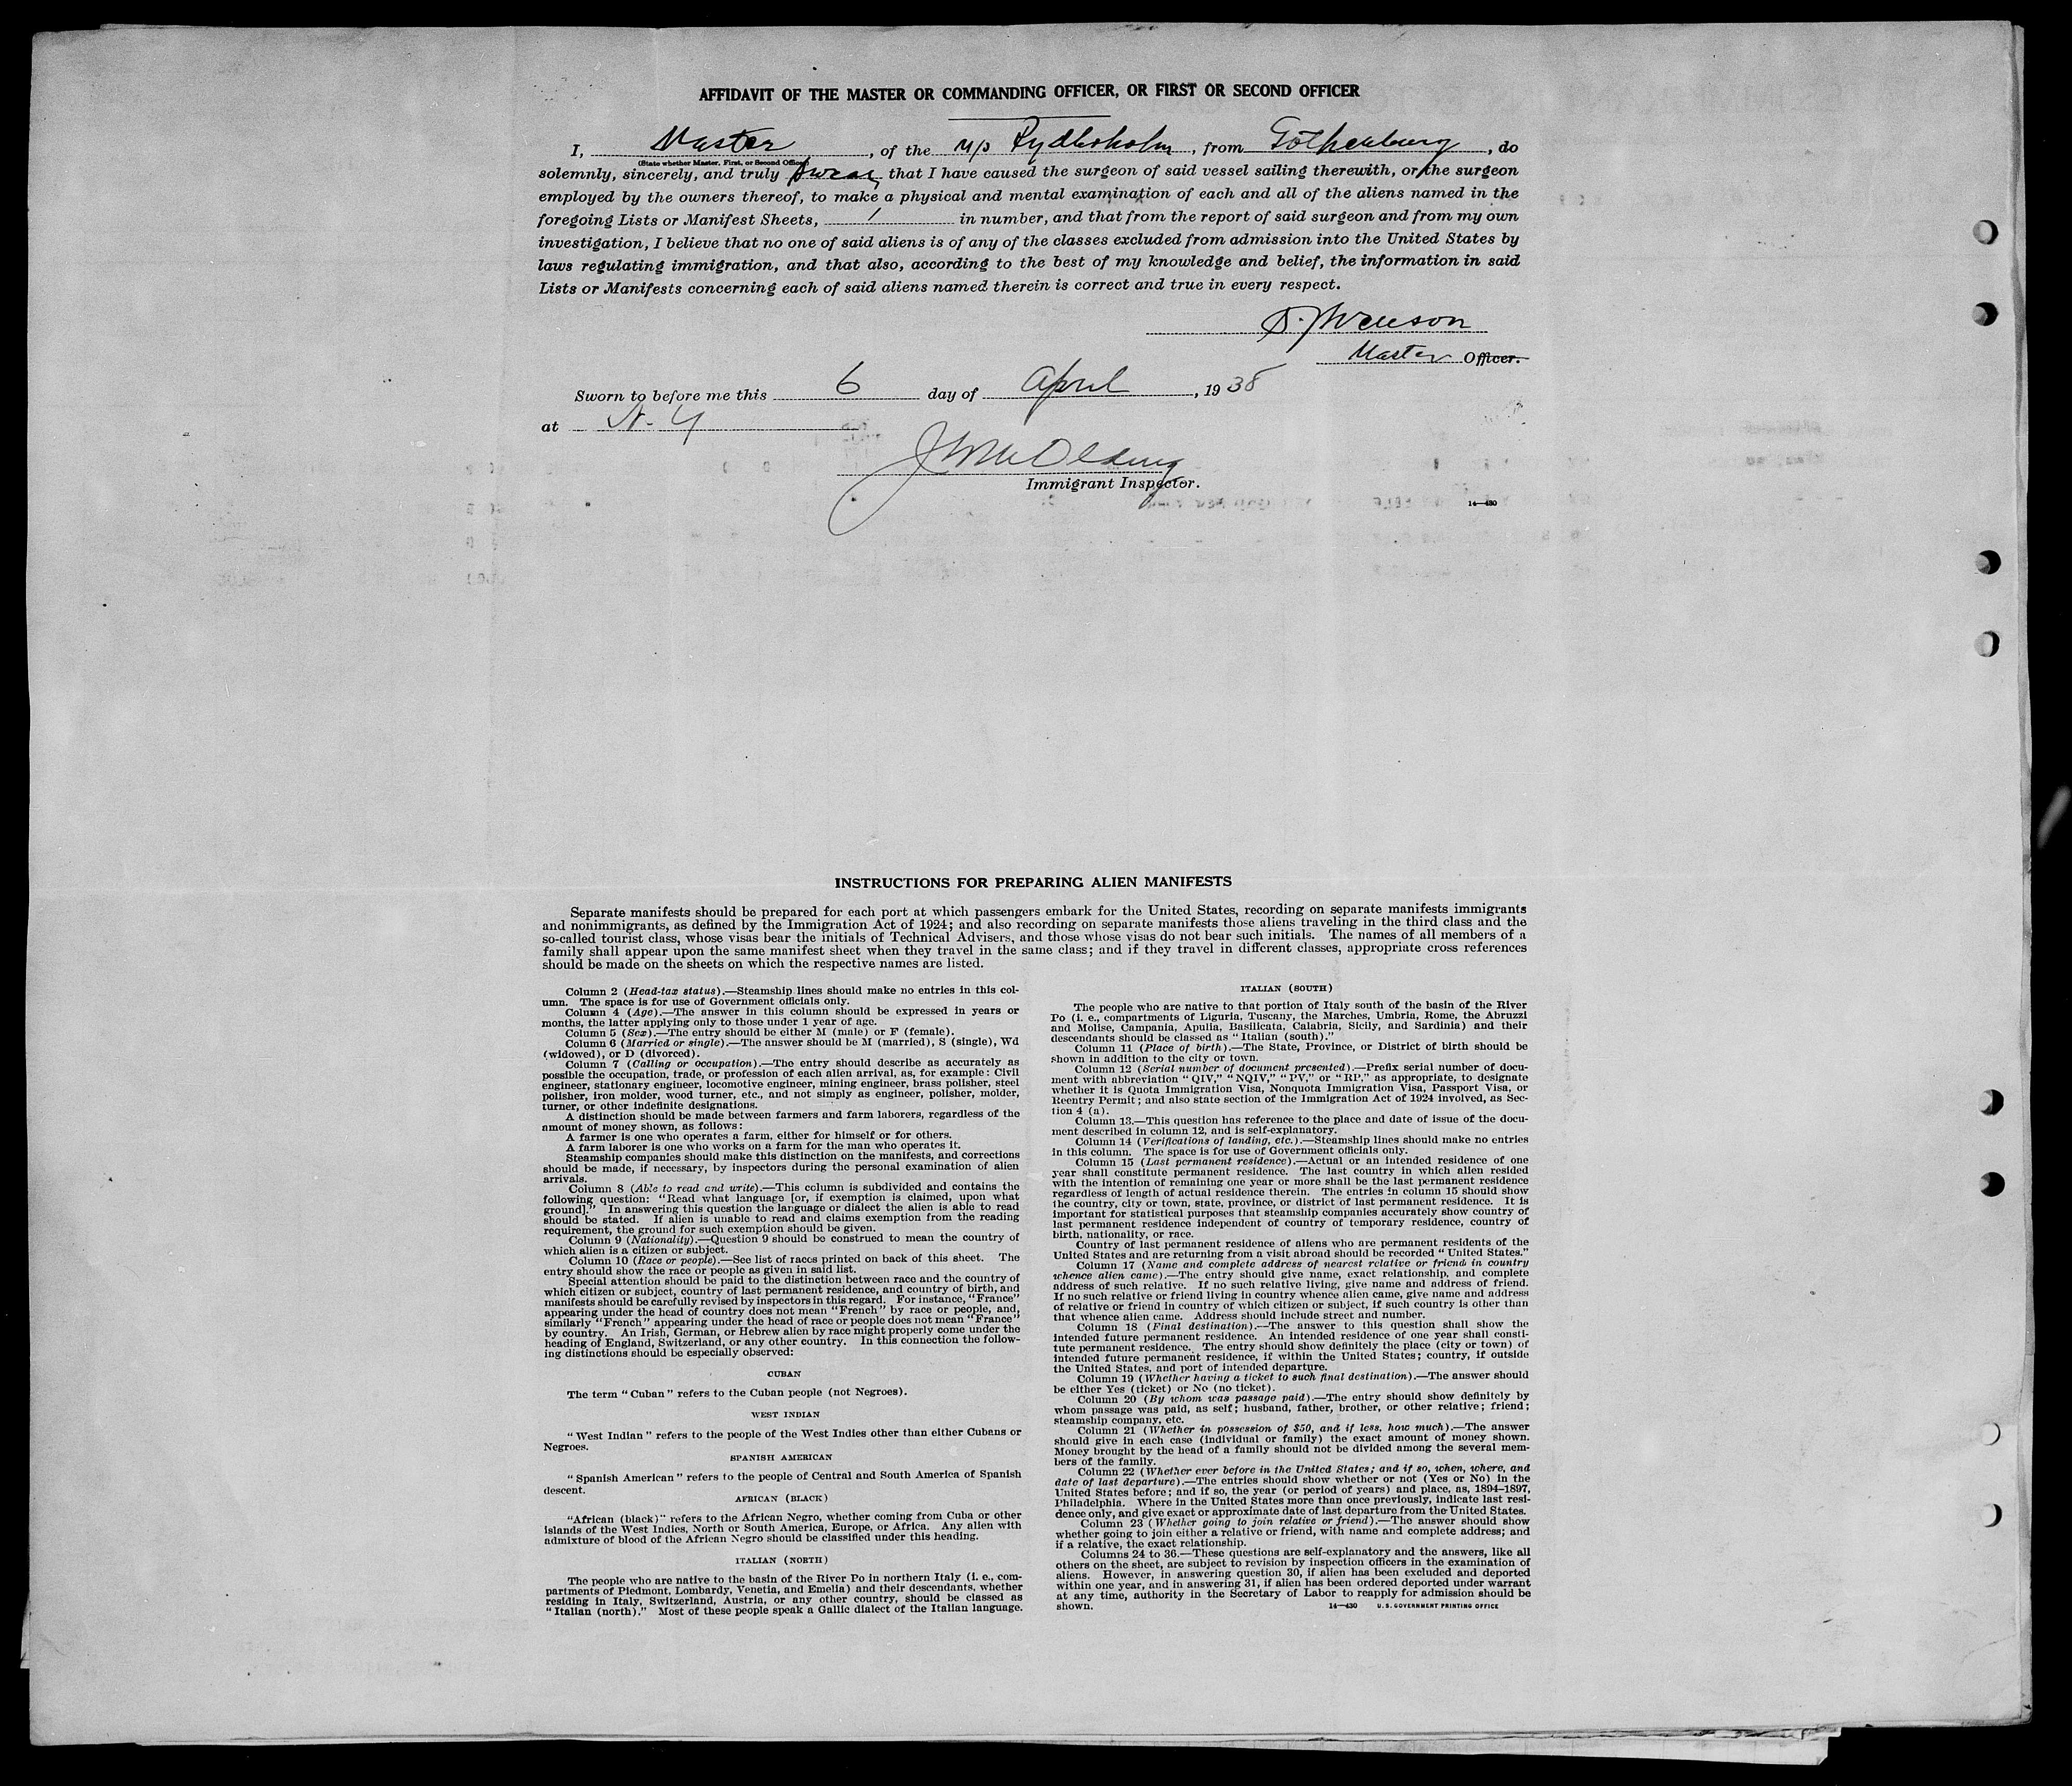 AFFIDAVIT OF THE MASTER OR COMMANDING OFFICER, OR FIRST OR SECOND OFFICER
I, Master, of the M/S Rydboholm, from Gothenburg, do
(State whether Master, First, or Second Officer)
solemnly, sincerely, and truly swear that I have caused the surgeon of said vessel sailing therewith, or the surgeon
employed by the owners thereof, to make a physical and mental examination of each and all of the aliens named in the
foregoing Lists or Manifest Sheets, 1 in number, and that from the report of said surgeon and from my own
investigation, I believe that no one of said aliens is of any of the classes excluded from admission into the United States by
laws regulating immigration, and that also, according to the best of my knowledge and belief, the information in said
Lists or Manifests concerning each of said aliens named therein is correct and true in every respect.
Swenson
Master Officer.
Sworn to before me this 6 day of April, 1938
at N. Y
Immigrant Inspector.
14—430
INSTRUCTIONS FOR PREPARING ALIEN MANIFESTS
Separate manifests should be prepared for each port at which passengers embark for the United States, recording on separate manifests immigrants
and nonimmigrants, as defined by the Immigration Act of 1924; and also recording on separate manifests those aliens traveling in the third class and the
so-called tourist class, whose visas bear the initials of Technical Advisers, and those whose visas do not bear such initials. The names of all members of a
family shall appear upon the same manifest sheet when they travel in the same class; and if they travel in different classes, appropriate cross references
should be made on the sheets on which the respective names are listed.
Column 2 (Head-tax status).—Steamship lines should make no entries in this col-
umn. The space is for use of Government officials only.
Column 4 (Age).—The answer in this column should be expressed in years or
months, the latter applying only to those under 1 year of age.
Column 5 (Sex).—The entry should be either M (male) or F (female).
Column 6 (Married or single).—The answer should be M (married), S (single), Wd
(widowed), or D (divorced).
Column 7 (Calling or occupation).—The entry should describe as accurately as
possible the occupation, trade, or profession of each alien arrival, as, for example: Civil
engineer, stationary engineer, locomotive engineer, mining engineer, brass polisher, steel
polisher, iron molder, wood turner, etc., and not simply as engineer, polisher, molder,
turner, or other indefinite designations.
A distinction should be made between farmers and farm laborers, regardless of the
amount of money shown, as follows:
A farmer is one who operates a farm, either for himself or for others.
A farm laborer is one who works on a farm for the man who operates it.
Steamship companies should make this distinction on the manifests, and corrections
should be made, if necessary, by inspectors during the personal examination of alien
arrivals.
Column 8 (Able to read and write).—This column is subdivided and contains the
following question: "Read what language [or, if exemption is claimed, upon what
ground]." In answering this question the language or dialect the alien is able to read
should be stated. If alien is unable to read and claims exemption from the reading
requirement, the ground for such exemption should be given.
Column 9 (Nationality).—Question 9 should be construed to mean the country of
which alien is a citizen or subject.
Column 10 (Race or people).—See list of races printed on back of this sheet. The
entry should show the race or people as given in said list.
Special attention should be paid to the distinction between race and the country of
which citizen or subject, country of last permanent residence, and country of birth, and
manifests should be carefully revised by inspectors in this regard. For instance, "France"
appearing under the head of country does not mean "French" by race or people, and,
similarly "French" appearing under the head of race or people does not mean "France"
by country. An Irish, German, or Hebrew alien by race might properly come under the
heading of England, Switzerland, or any other country. In this connection the follow-
ing distinctions should be especially observed:
CUBAN
The term "Cuban" refers to the Cuban people (not Negroes).
WEST INDIAN
"West Indian" refers to the people of the West Indies other than either Cubans or
Negroes.
SPANISH AMERICAN
"Spanish American" refers to the people of Central and South America of Spanish
descent.
AFRICAN (BLACK)
"African (black)" refers to the African Negro, whether coming from Cuba or other
islands of the West Indies, North or South America, Europe, or Africa. Any alien with
admixture of blood of the African Negro should be classified under this heading.
ITALIAN (NORTH)
The people who are native to the basin of the River Po in northern Italy (i. e., com-
partments of Piedmont, Lombardy, Venetia, and Emelia) and their descendants, whether
residing in Italy, Switzerland, Austria, or any other country, should be classed as
"Italian (north)." Most of these people speak a Gallic dialect of the Italian language.
ITALIAN (SOUTH)
The people who are native to that portion of Italy south of the basin of the River
Po (i. e., compartments of Liguria, Tuscany, the Marches, Umbria, Rome, the Abruzzi
and Molise, Campania, Apulia, Basilicata, Calabria, Sicily, and Sardinia) and their
descendants should be classed as "Italian (south)."
Column 11 (Place of birth).—The State, Province, or District of birth should be
shown in addition to the city or town.
Column 12 (Serial number of document presented).—Prefix serial number of docu-
ment with abbreviation "QIV," "NQIV," "PV," or "RP," as appropriate, to designate
whether it is Quota Immigration Visa, Nonquota Immigration Visa, Passport Visa, or
Reentry Permit; and also state section of the Immigration Act of 1924 involved, as Sec-
tion 4 (a).
Column 13.—This question has reference to the place and date of issue of the docu-
ment described in column 12, and is self-explanatory.
Column 14 (Verifications of landing, etc.).—Steamship lines should make no entries
in this column. The space is for use of Government officials only.
Column 15 (Last permanent residence).—Actual or an intended residence of one
year shall constitute permanent residence. The last country in which alien resided
with the intention of remaining one year or more shall be the last permanent residence
regardless of length of actual residence therein. The entries in column 15 should show
the country, city or town, state, province, or district of last permanent residence. It is
important for statistical purposes that steamship companies accurately show country of
last permanent residence independent of country of temporary residence, country of
birth, nationality, or race.
Country of last permanent residence of aliens who are permanent residents of the
United States and are returning from a visit abroad should be recorded "United States."
Column 17 (Name and complete address of nearest relative or friend in country
whence alien came).—The entry should give name, exact relationship, and complete
address of such relative. If no such relative living, give name and address of friend.
If no such relative or friend living in country whence alien came, give name and address
of relative or friend in country of which citizen or subject, if such country is other than
that whence alien came. Address should include street and number.
Column 18 (Final destination).—The answer to this question shall show the
intended future permanent residence. An intended residence of one year shall consti-
tute permanent residence. The entry should show definitely the place (city or town) of
intended future permanent residence, if within the United States; country, if outside
the United States, and port of intended departure.
Column 19 (Whether having a ticket to such final destination).—The answer should
be either Yes (ticket) or No (no ticket).
Column 20 (By whom was passage paid).—The entry should show definitely by
whom passage was paid, as self; husband, father, brother, or other relative; friend;
steamship company, etc.
Column 21 (Whether in possession of $50, and if less, how much).—The answer
should give in each case (individual or family) the exact amount of money shown.
Money brought by the head of a family should not be divided among the several mem-
bers of the family.
Column 22 (Whether ever before in the United States; and if so, when, where, and
date of last departure).—The entries should show whether or not (Yes or No) in the
United States before; and if so, the year (or period of years) and place, as, 1894-1897,
Philadelphia. Where in the United States more than once previously, indicate last resi-
dence only, and give exact or approximate date of last departure from the United States.
Column 23 (Whether going to join relative or friend).—The answer should show
whether going to join either a relative or friend, with name and complete address; and
if a relative, the exact relationship.
Columns 24 to 36.—These questions are self-explanatory and the answers, like all
others on the sheet, are subject to revision by inspection officers in the examination of
aliens. However, in answering question 30, if alien has been excluded and deported
within one year, and in answering 31, if alien has been ordered deported under warrant
at any time, authority in the Secretary of Labor to reapply for admission should be
shown.
14—430 U. S. GOVERNMENT PRINTING OFFICE